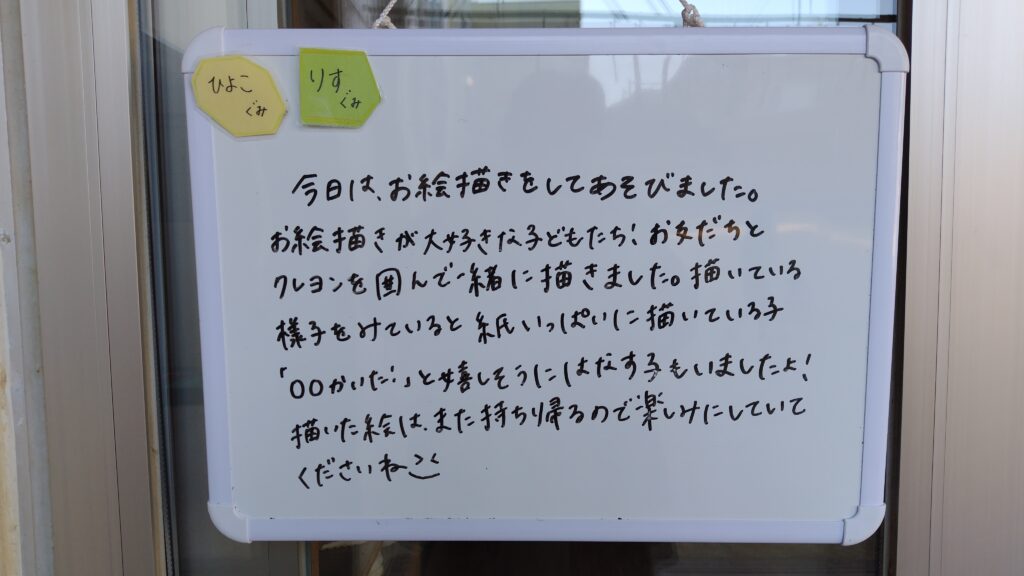 ひよこ
ぐみ
りす
ぐみ
今日は、お絵描きをしてあそびました。
お絵描きが大好きな子どもたち!お友だちと
クレヨンを囲んで一緒に描きました。描いている
様子をみていると紙いっぱいに描いている子
「〇〇かいた!」と嬉しそうにはなす子もいましたよ!
描いた絵は、また持ち帰るので楽しみにしていて
くださいね